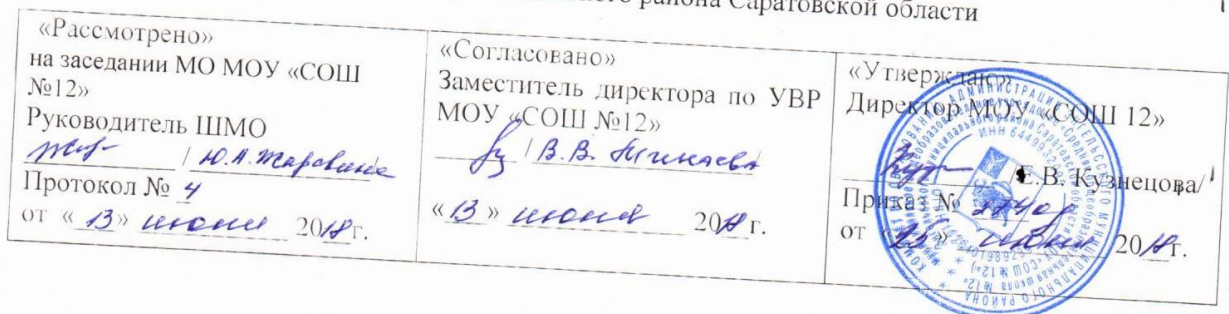 района Саратовской области
«Рассмотрено»
на заседании МО МОУ «СОШ
№12»
Руководитель ШМО
/ Ю.А.
Протокол № 4
от «13» июня 2018г.
«Согласовано»
Заместитель директора по УВР
МОУ «СОШ №12»
/ В.В.
«13» июня 2018г.
«Утверждаю»
Директор МОУ «СОШ 12»
Е.В. Кузнецова/
Приказ №
от «25» июня 2018г.